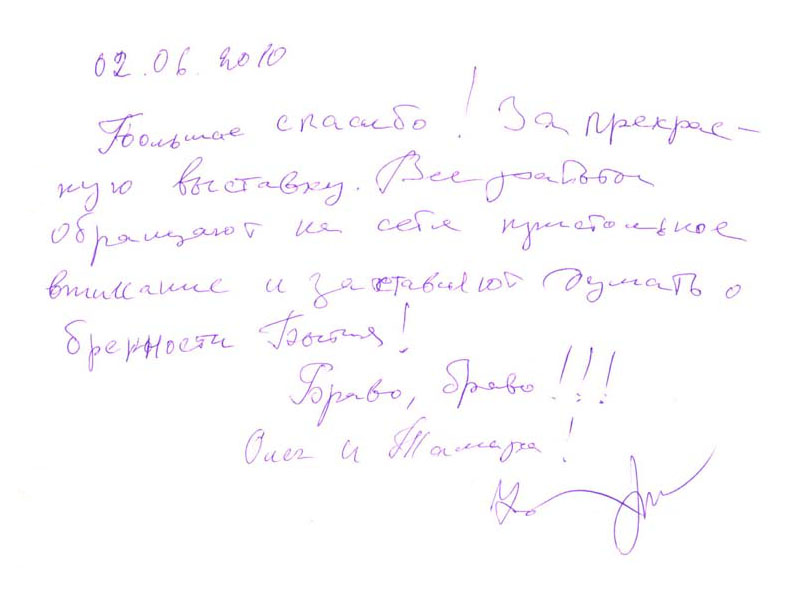 02.06.2010
Большое спасибо! За прекрас-
ную выставку. Все работы
обращают на себя пристольное
внимание и заставляют думать о
бренности Бытия!
Браво, браво!!!
Олег и Тамара!